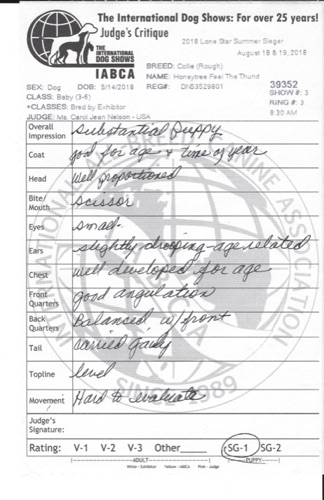 The International Dog Shows: For over 25 years!
Judge's Critique
2018 Lone Star Summer Sieger
August 18 & 19, 2018
THE INTERNATIONAL DOG SHOWS
IABCA
BREED: Collie (Rough)
NAME: Honeytree Feel The Thund
SEX: Dog DOB: 5/14/2018 REG#: DN53529801
39352
SHOW #: 3
CLASS: Baby (3-6)
RING #: 3
+CLASSES: Bred by Exhibitor
8:30 AM
JUDGE: Ms. Carol Jean Nelson - USA
Overall Impression Substantial Puppy
Coat good for age & time of year
Head Well proportioned
Bite/Mouth Scissor
Eyes small
Ears slightly drooping - age related
Chest well developed for age
Front Quarters good angulation
Back Quarters Balanced w/front
Tail carried gaily
Topline level
Movement Hard to evaluate
Judge's Signature:
Rating: V-1 V-2 V-3 Other SG-1 SG-2
ADULT PUPPY
White - Exhibitor Yellow - IABCA Pink - Judge
INTERNATIONAL ALL BREED CANINE ASSOCIATION
SINCE 1989